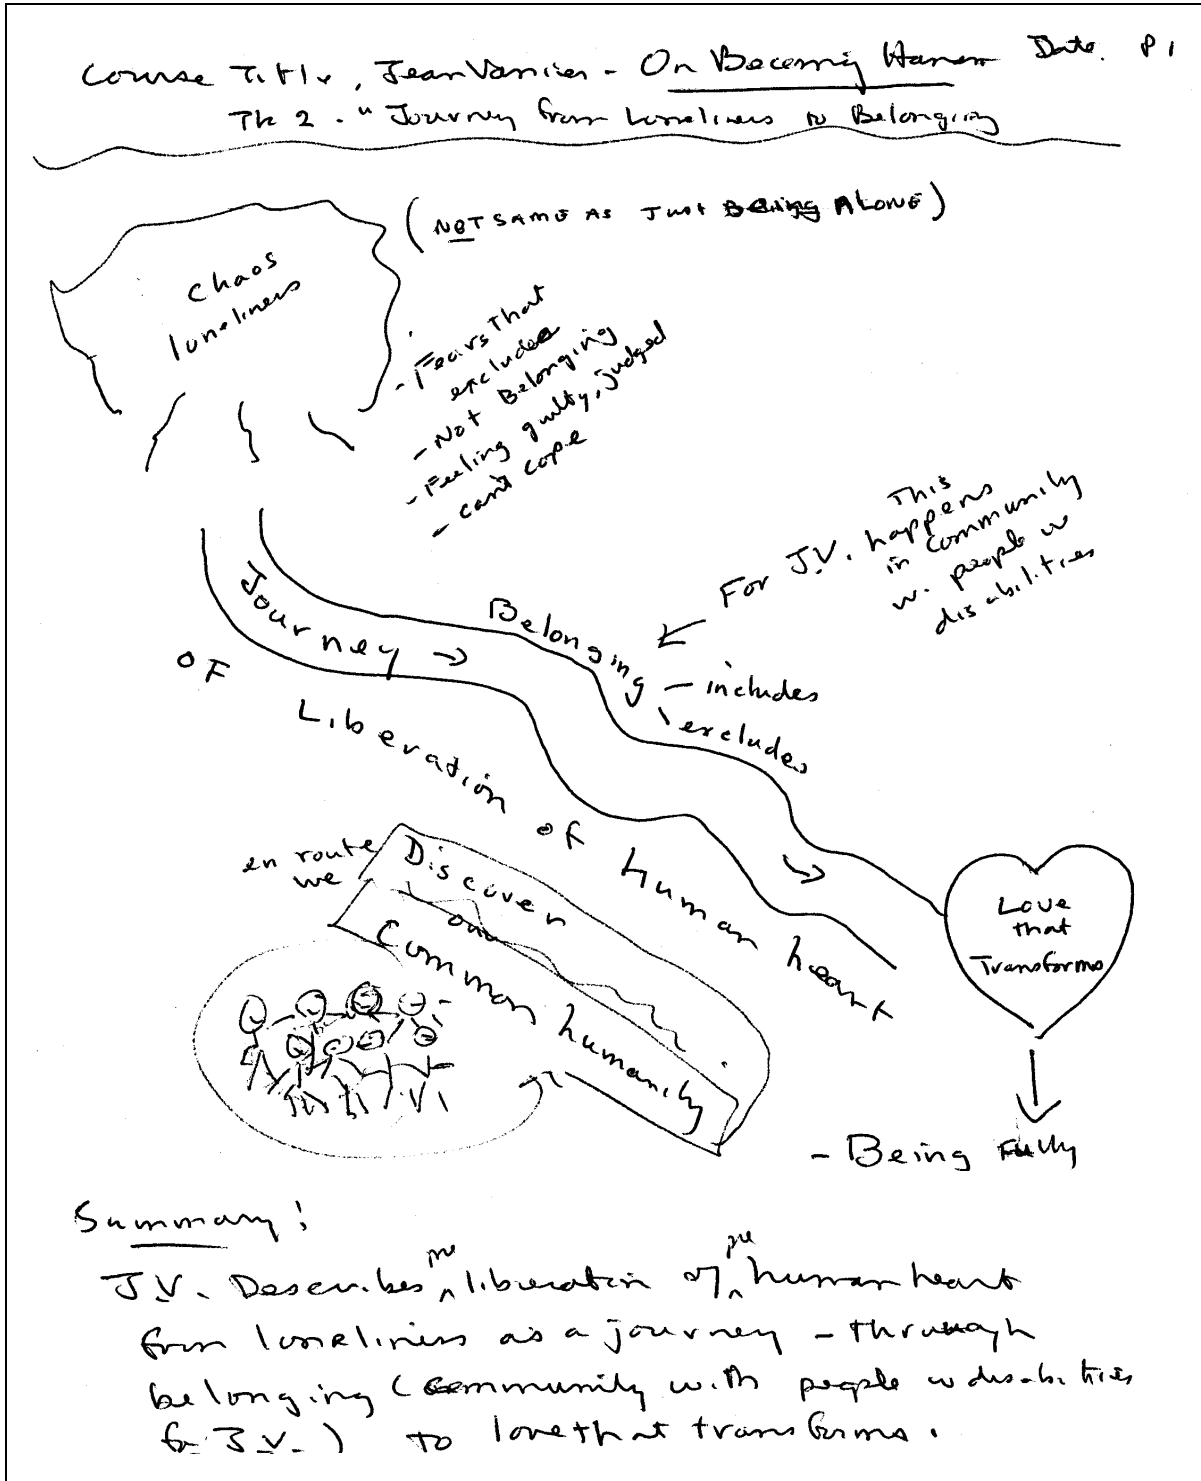 Course Title, Jean Vanier - On Becoming Human Date. P 1
Th 2 - "Journey from Loneliness to Belonging
(NOT SAME AS JUST Being ALONE)
Chaos
loneliness
- Fears That
exclude
- Not Belonging
- Feeling guilty, judged
- can't cope
This
For J.V. happens
in community
w. people w
disabilities
Journey →
Belonging
- includes
\ excludes
OF
Liberation of human heart
en route
we
Discover
our
Common humanity
Love
that
Transforms
- Being Fully
Summary:
J.V. Describes the liberation of the human heart
from loneliness as a journey - through
belonging (community with people w disabilities
for J.V.) to love that transforms.